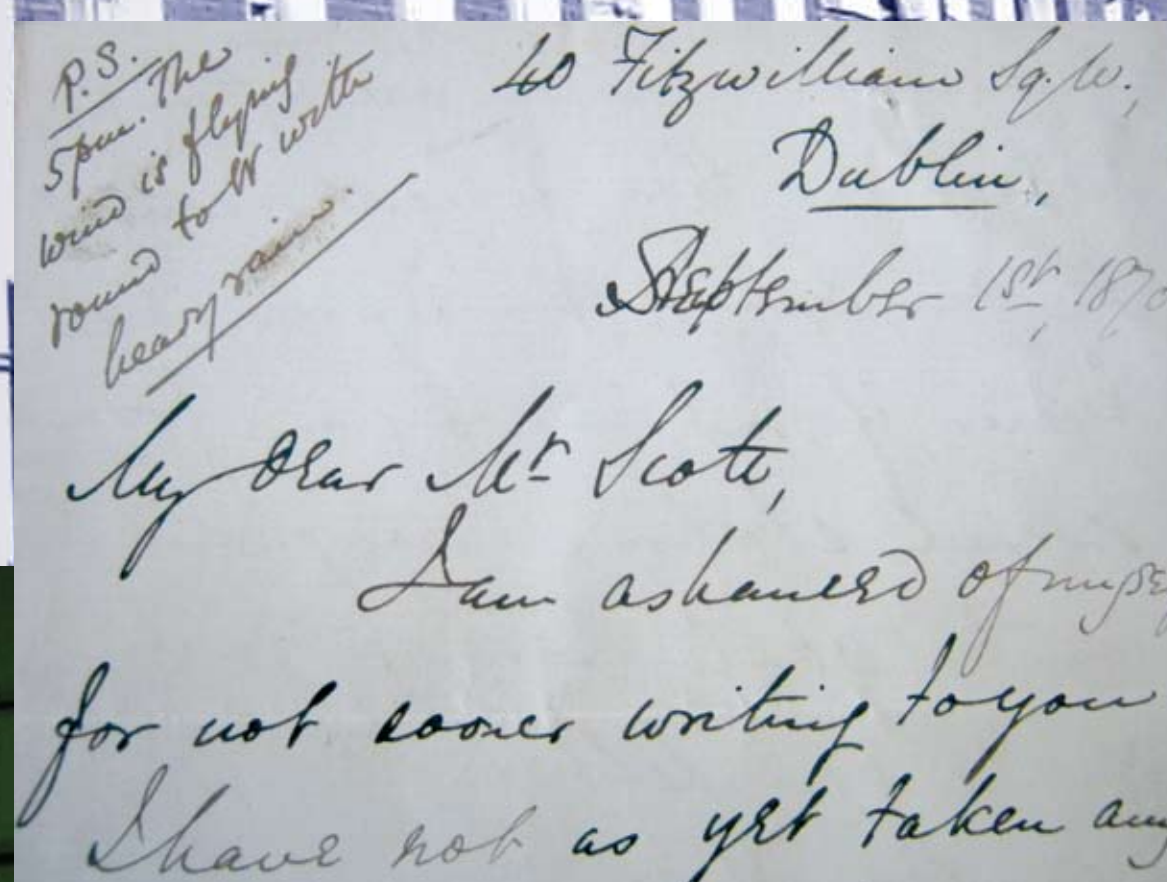 P.S.
5pm. The
wind is flying
round to W with
heavy rain.
40 Fitzwilliam Sq. W.,
Dublin,
September 1st, 187
My dear Mr Scott,
I am ashamed of myse
for not sooner writing to you
I have not as yet taken any